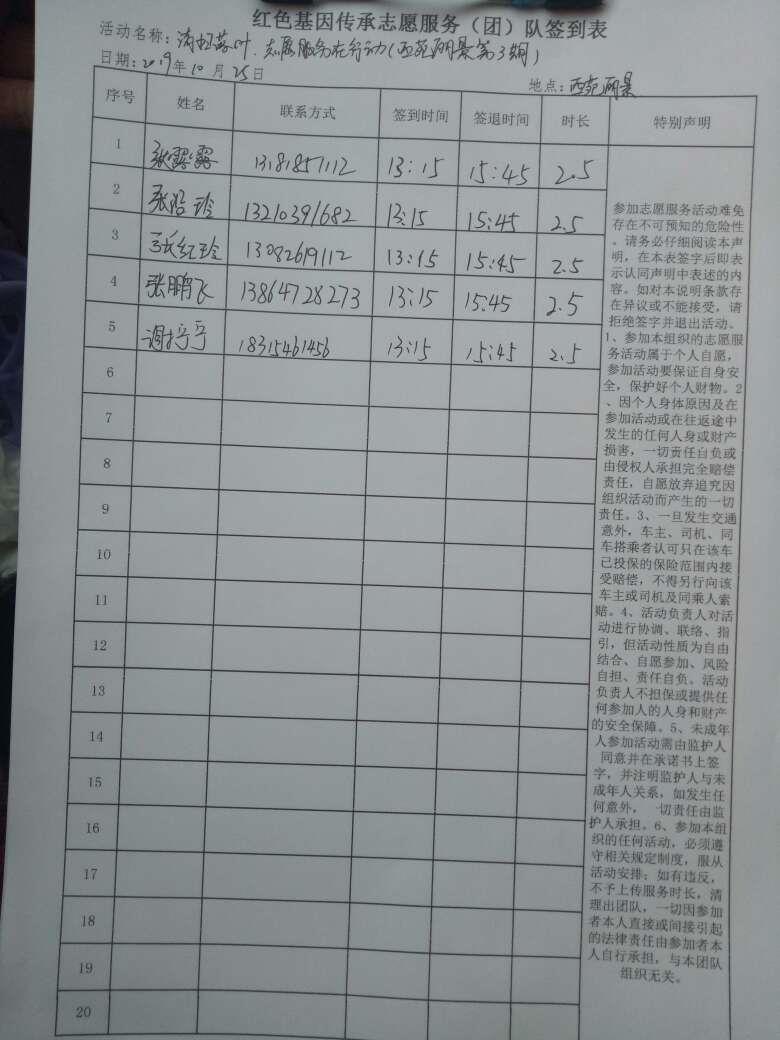 红色基因传承志愿服务（团）队签到表
活动名称：清扫落叶．志愿服务在行动(西苑丽景第3期)
日期：2019年10月25日
地点：西苑丽景
序号 姓名 联系方式 签到时间 签退时间 时长 特别声明
1 张露露 13:15 15:45 2.5
2 13210391682 13:15 15:45 2.5
3 张红玲 13082619112 13:15 15:45 2.5
4 张鹏飞 13864728273 13:15 15:45 2.5
5 18315461456 13:15 15:45 2.5
6
7
8
9
10
11
12
13
14
15
16
17
18
19
20
参加志愿服务活动难免
存在不可预知的危险性
。请务必仔细阅读本声
明，在本表签字后即表
示认同声明中表述的内
容。如对本说明条款存
在异议或不能接受，请
拒绝签字并退出活动。
1、参加本组织的志愿服
务活动属于个人自愿，
参加活动要保证自身安
全，保护好个人财物。2
、因个人身体原因及在
参加活动或在往返途中
发生的任何人身或财产
损害，一切责任自负或
由侵权人承担完全赔偿
责任，自愿放弃追究因
组织活动而产生的一切
责任。3、一旦发生交通
意外，车主、司机、同
车搭乘者认可只在该车
已投保的保险范围内接
受赔偿，不得另行向该
车主或司机及同乘人索
赔。4、活动负责人对活
动进行协调、联络、指
引，但活动性质为自由
结合、自愿参加、风险
自担、责任自负。活动
负责人不担保或提供任
何参加人的人身和财产
的安全保障。5、未成年
人参加活动需由监护人
同意并在承诺书上签
字，并注明监护人与未
成年人关系，如发生任
何意外， 一切责任由监
护人承担。6、参加本组
织的任何活动，必须遵
守相关规定制度，服从
活动安排；如有违反，
不予上传服务时长，清
理出团队，一切因参加
者本人直接或间接引起
的法律责任由参加者本
人自行承担，与本团队
组织无关。